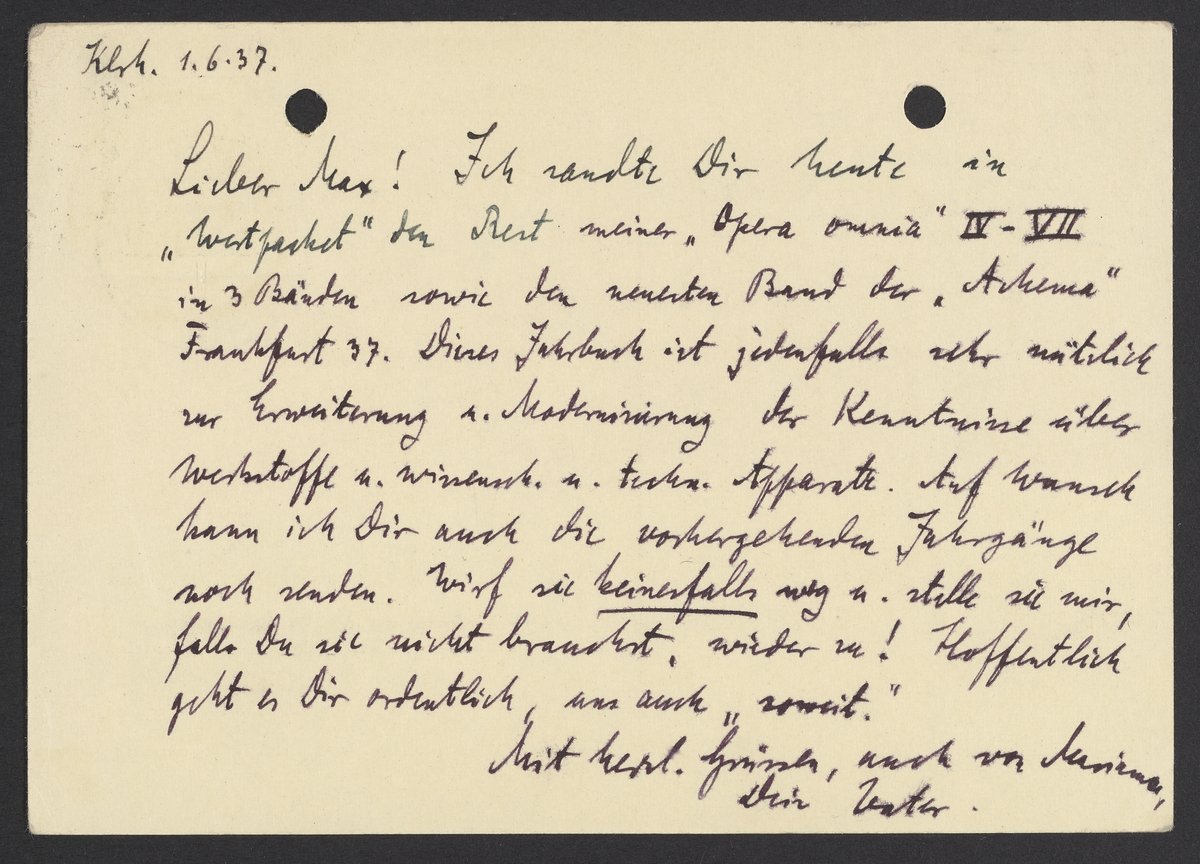 Klrh. 1.6.37.
Lieber Max! Ich sandte Dir heute in
„Wertpacket" den Rest meiner „Opera omnia" IV-VII
in 3 Bänden sowie den neuesten Band der „Achema"
Frankfurt 37. Dieses Jahrbuch ist jedenfalls sehr nützlich
zur Erweiterung u. Modernisierung der Kenntnisse über
Werkstoffe u. wissensch. u. techn. Apparate. Auf Wunsch
kann ich Dir auch die vorhergehenden Jahrgänge
noch senden. Wirf sie keinesfalls weg u. stelle sie mir,
falls Du sie nicht brauchst, wieder zu! Hoffentlich
geht es Dir ordentlich, uns auch „soweit."
Mit herzl. Grüssen, auch von Marianne,
Dein Vater.